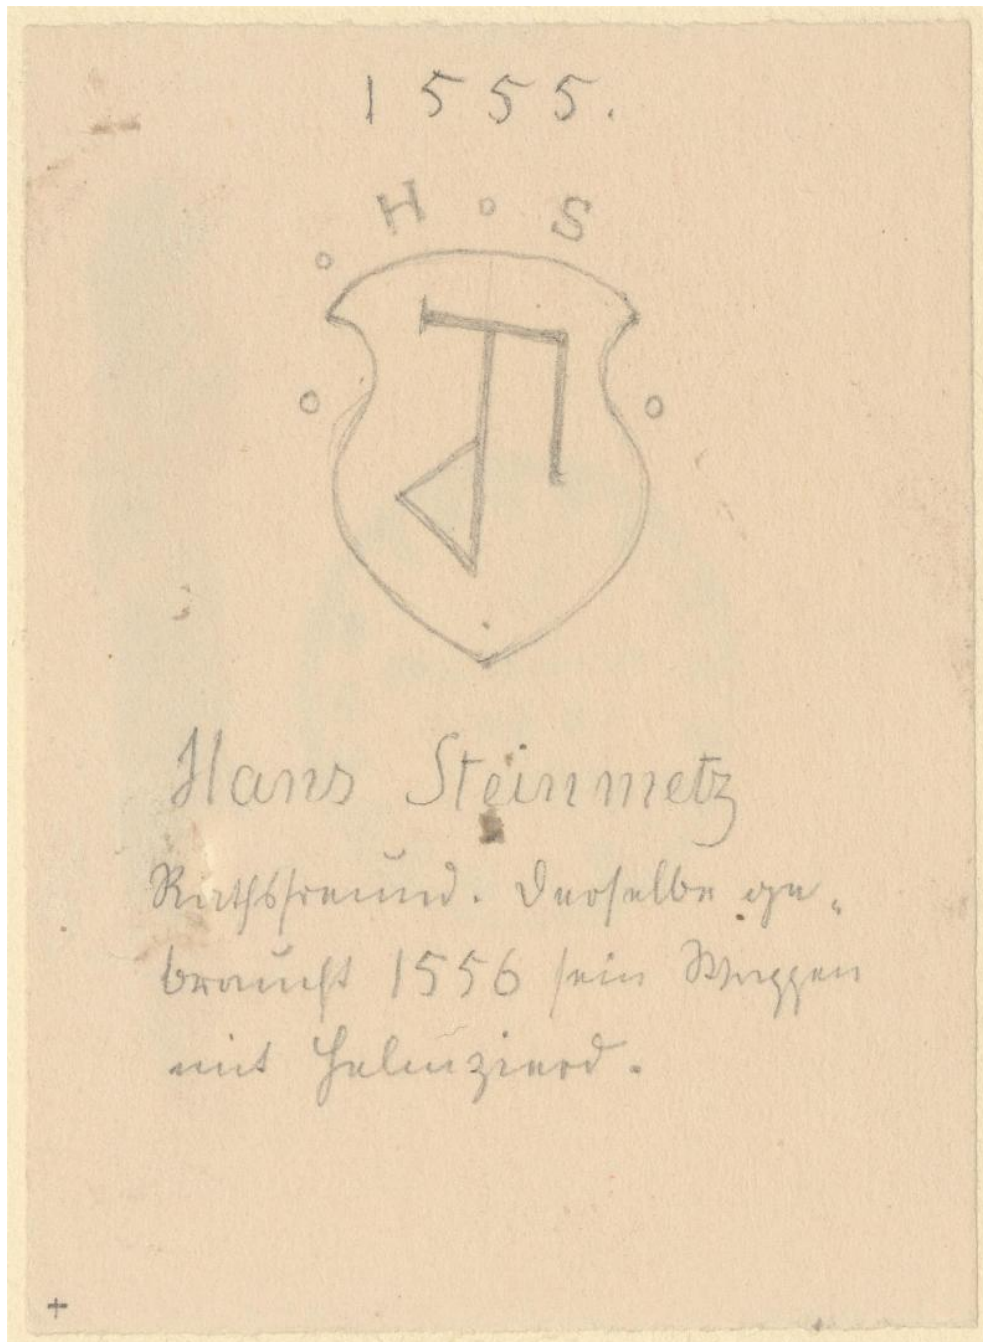 1555.
H S
Hans Steinmetz
Rathsfreund. Derselbe ge-
braucht 1556 sein Wappen
mit Helmzierd.